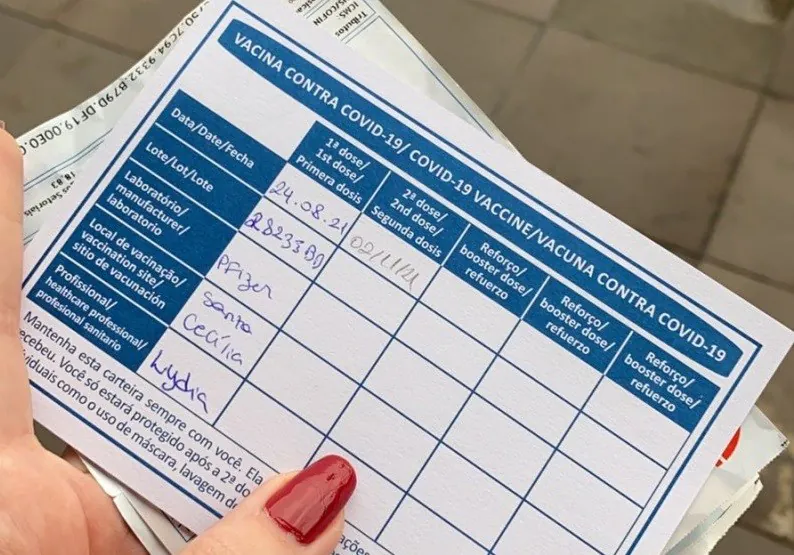 ICMS:
Tributos
VACINA CONTRA COVID-19/ COVID-19 VACCINE/VACUNA CONTRA COVID-19
Data/Date/Fecha
Lote/Lot/Lote
Laboratório/
manufacturer/
laboratorio
Local de vacinação/
vaccination site/
sitio de vacunación
Profissional/
healthcare professional/
profesional sanitario
1ª dose/
1st dose/
Primera dosis
2ª dose/
2nd dose/
Segunda dosis
Reforço/
booster dose/
refuerzo
Reforço/
booster dose/
refuerzo
Reforço/
booster dose/
refuerzo
24.08.21
02/11/21
Pfizer
Santa
Cecília
Lydia
Mantenha esta carteira sempre com você. Ela
recebeu. Você só estará protegido após a 2ª do
como o uso de máscara, lavagem d